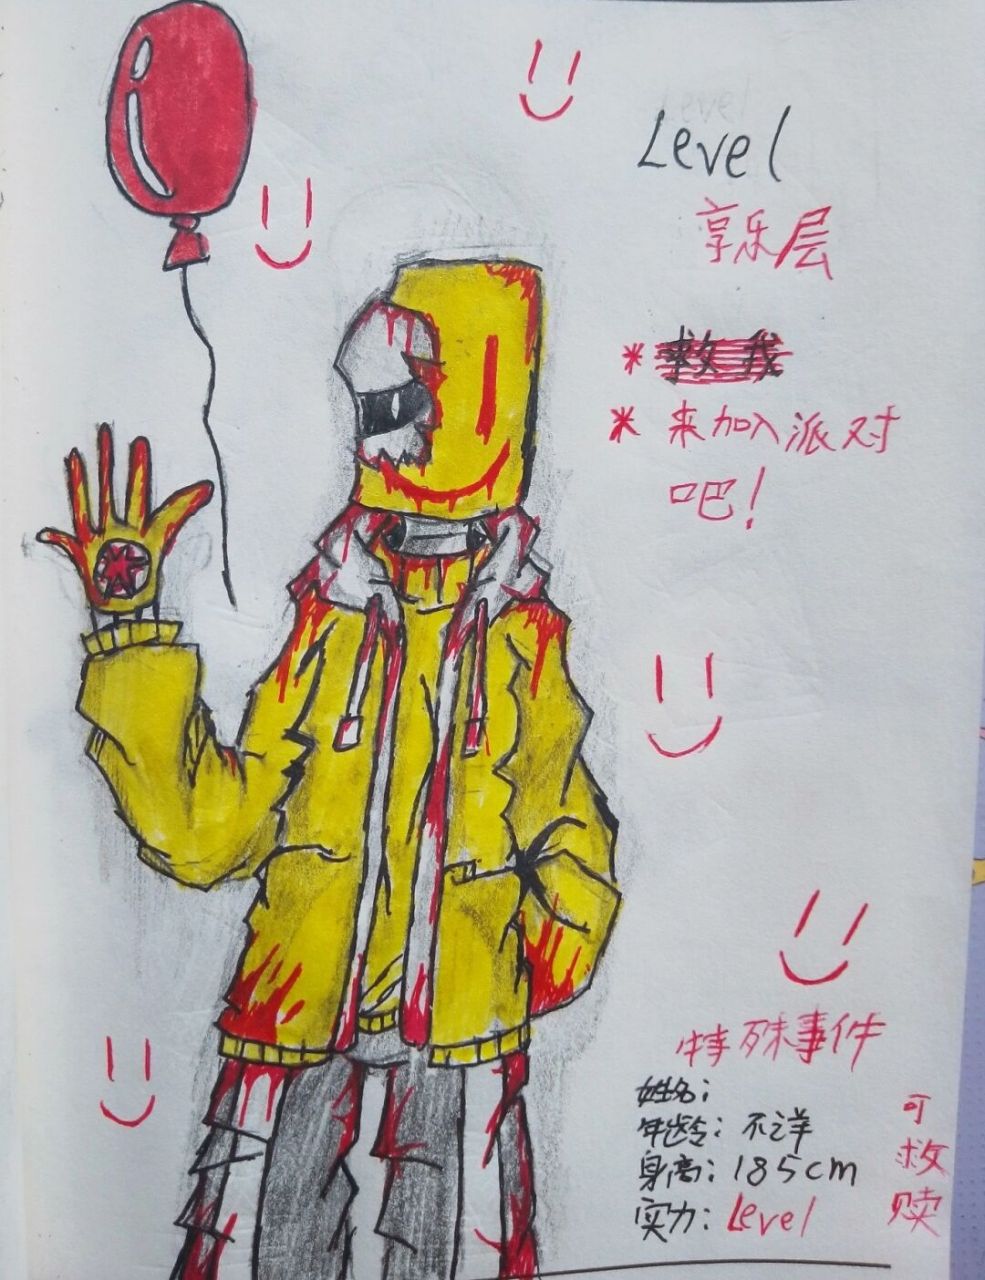 Level
享乐层
* 救我
* 来加入派对
吧！
特殊事件
姓名：
年龄：不详
身高：185cm
实力：Level
可
救
赎